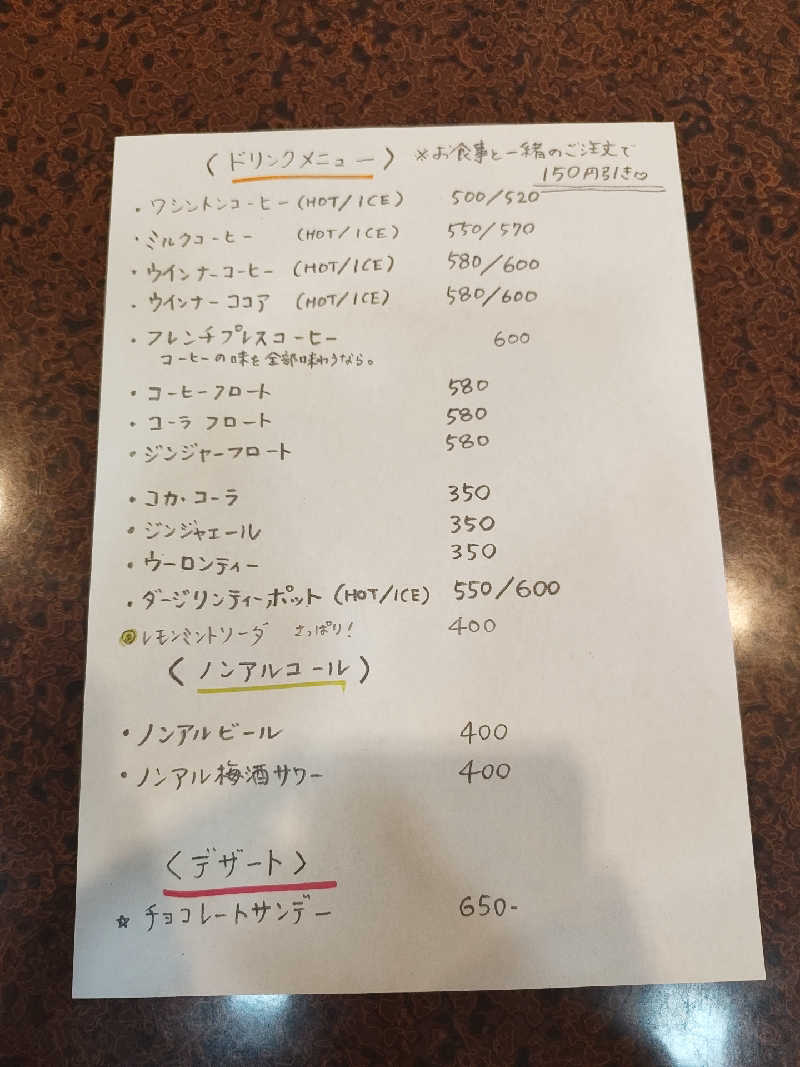 〈ドリンクメニュー〉 ※お食事と一緒のご注文で
150円引き♡
・ワシントンコーヒー(HOT/ICE) 500/520
・ミルクコーヒー (HOT/ICE) 550/570
・ウインナーコーヒー (HOT/ICE) 580/600
・ウインナーココア (HOT/ICE) 580/600
・フレンチプレスコーヒー 600
コーヒーの味を全部味わうなら。
・コーヒーフロート 580
・コーラ フロート 580
・ジンジャーフロート 580
・コカ・コーラ 350
・ジンジャエール 350
・ウーロンティー 350
・ダージリンティーポット (HOT/ICE) 550/600
◎レモンミントソーダ さっぱり! 400
〈ノンアルコール〉
・ノンアルビール 400
・ノンアル梅酒サワー 400
〈デザート〉
☆チョコレートサンデー 650-